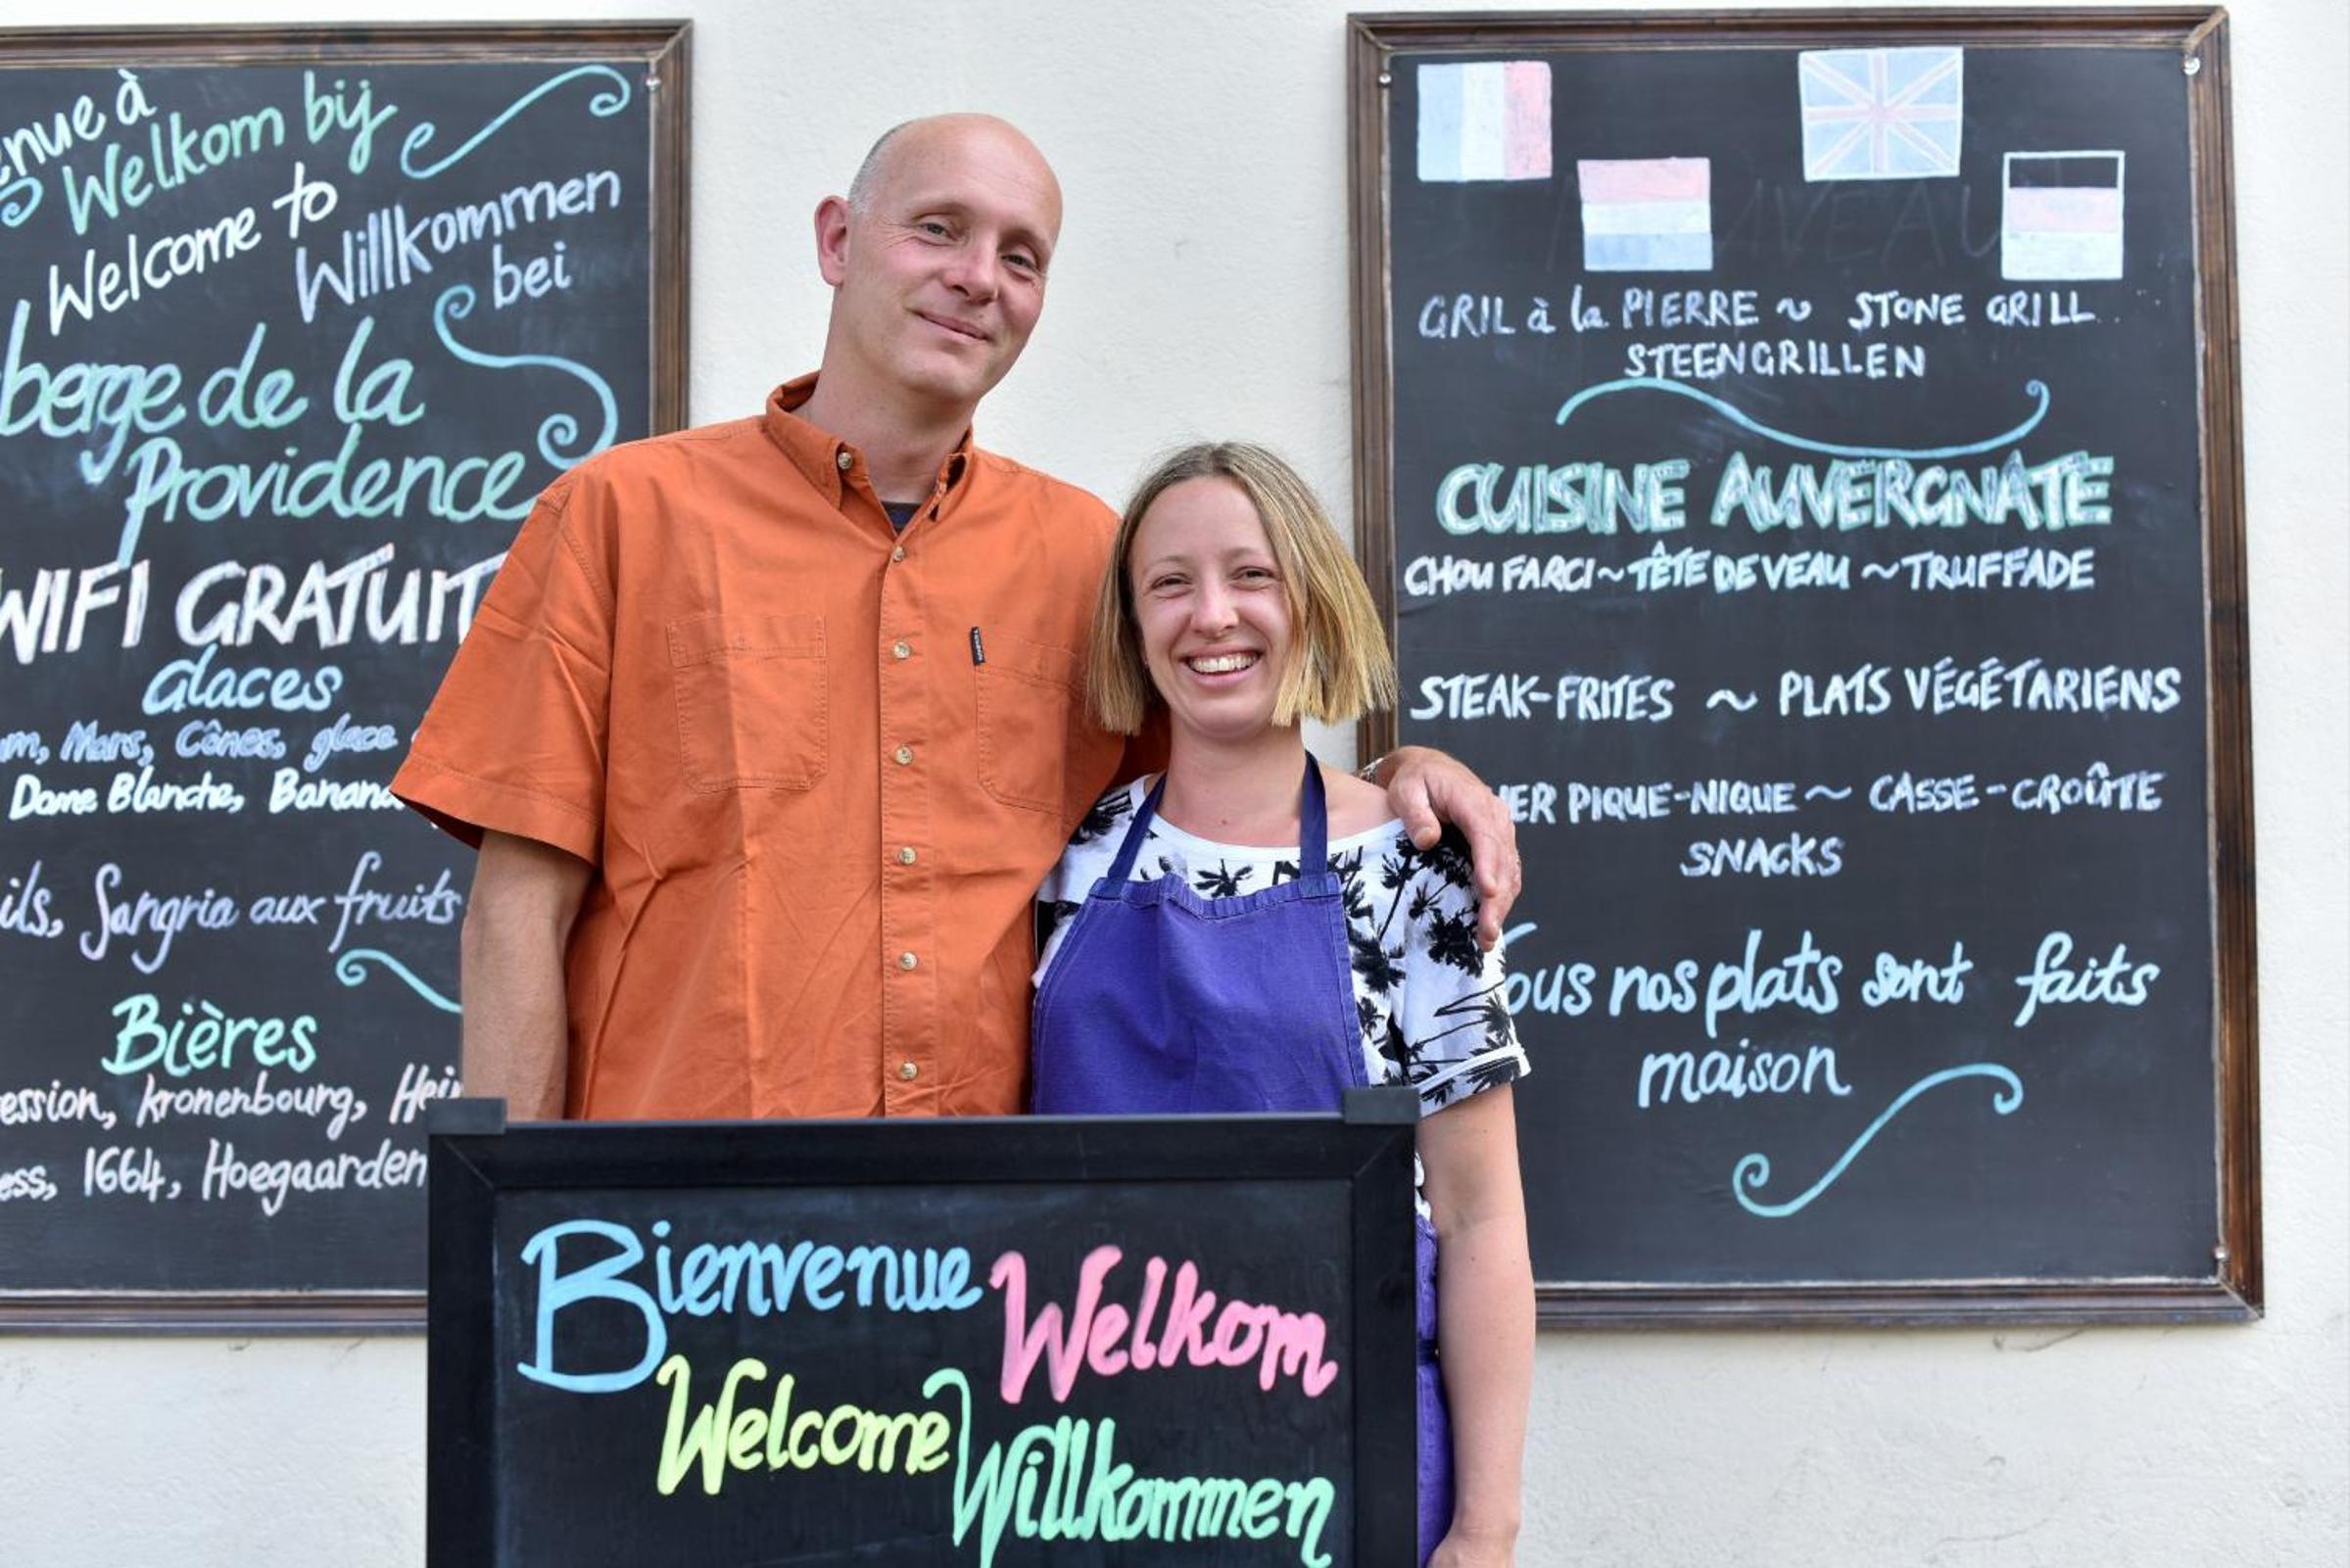 à
Welkom bij
Welcome to
Willkommen
bei
de la
Providence
WIFI GRATUIT
Glaces
Mars, Cônes, glace
Dame Blanche,
Sangria aux fruits
Bières
kronenbourg,
1664, Hoegaarden
GRIL à la PIERRE ~ STONE GRILL
STEENGRILLEN
CUISINE AUVERGNATE
CHOU FARCI ~ TÊTE DE VEAU ~ TRUFFADE
STEAK-FRITES ~ PLATS VÉGÉTARIENS
PIQUE-NIQUE ~ CASSE-CROÛTE
SNACKS
nos plats sont faits
maison
Bienvenue Welkom
Welcome Willkommen